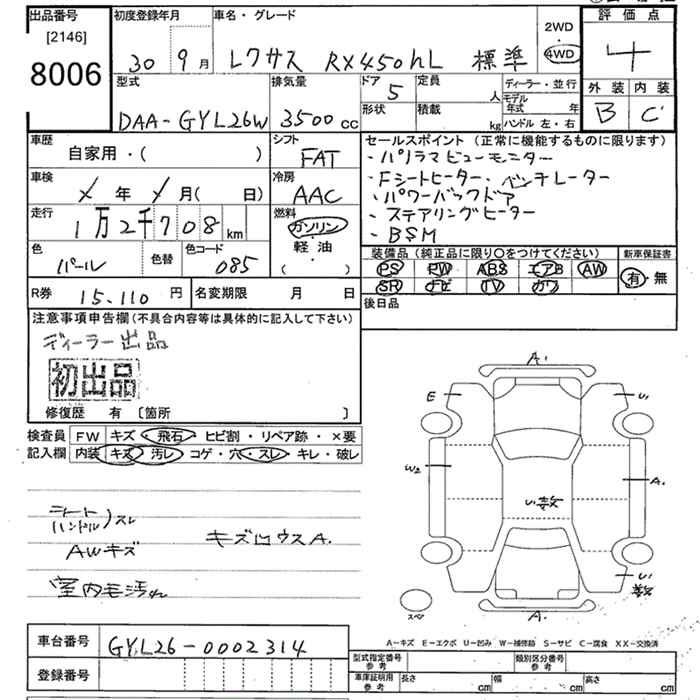 出品番号
[2146]
8006
初度登録年月
30 9 月
車名・グレード
レクサス RX450hL 標準
2WD
・
4WD
評価点
4
外装 内装
B C
型式
DAA-GYL26W
排気量
3500 cc
ドア
5
形状
定員
人
積載
kg
ディーラー・並行
モデル
年式 年
ハンドル 左・右
車歴
自家用・( )
シフト
FAT
車検
年 月( 日)
冷房
AAC
走行
1万2千708 km
燃料
ガソリン
・
軽油
・
( )
色
パール
色替
色コード
085
R券
15,110 円
名変期限 月 日
セールスポイント(正常に機能するものに限ります)
・パノラマビューモニター
・Fシートヒーター、ベンチレーター
・パワーバックドア
・ステアリングヒーター
・BSM
装備品(純正品に限り○をつけてください)
PS PW ABS エアB AW
SR ナビ TV カワ
新車保証書
有・無
後日品
注意事項申告欄(不具合内容等は具体的に記入して下さい)
ディーラー出品
初出品
修復歴 有 〔箇所 〕
検査員
記入欄
FW キズ・飛石・ヒビ割・リペア跡・×要
内装 キズ・汚レ・コゲ・穴・スレ・キレ・破レ
シート
ハンドル)スレ
AWキズ
キズ凹ウスA.
室内毛汚れ
A.
E
U1
W2
A.
U1数
U1
数
スペア
A.
A-キズ E-エクボ U-凹み W-補修跡 S-サビ C-腐食 XX-交換済
車台番号
GYL26-0002314
登録番号
型式指定番号
参考
類別区分番号
参考
車庫証明用
参考
長さ cm 幅 cm 高さ cm